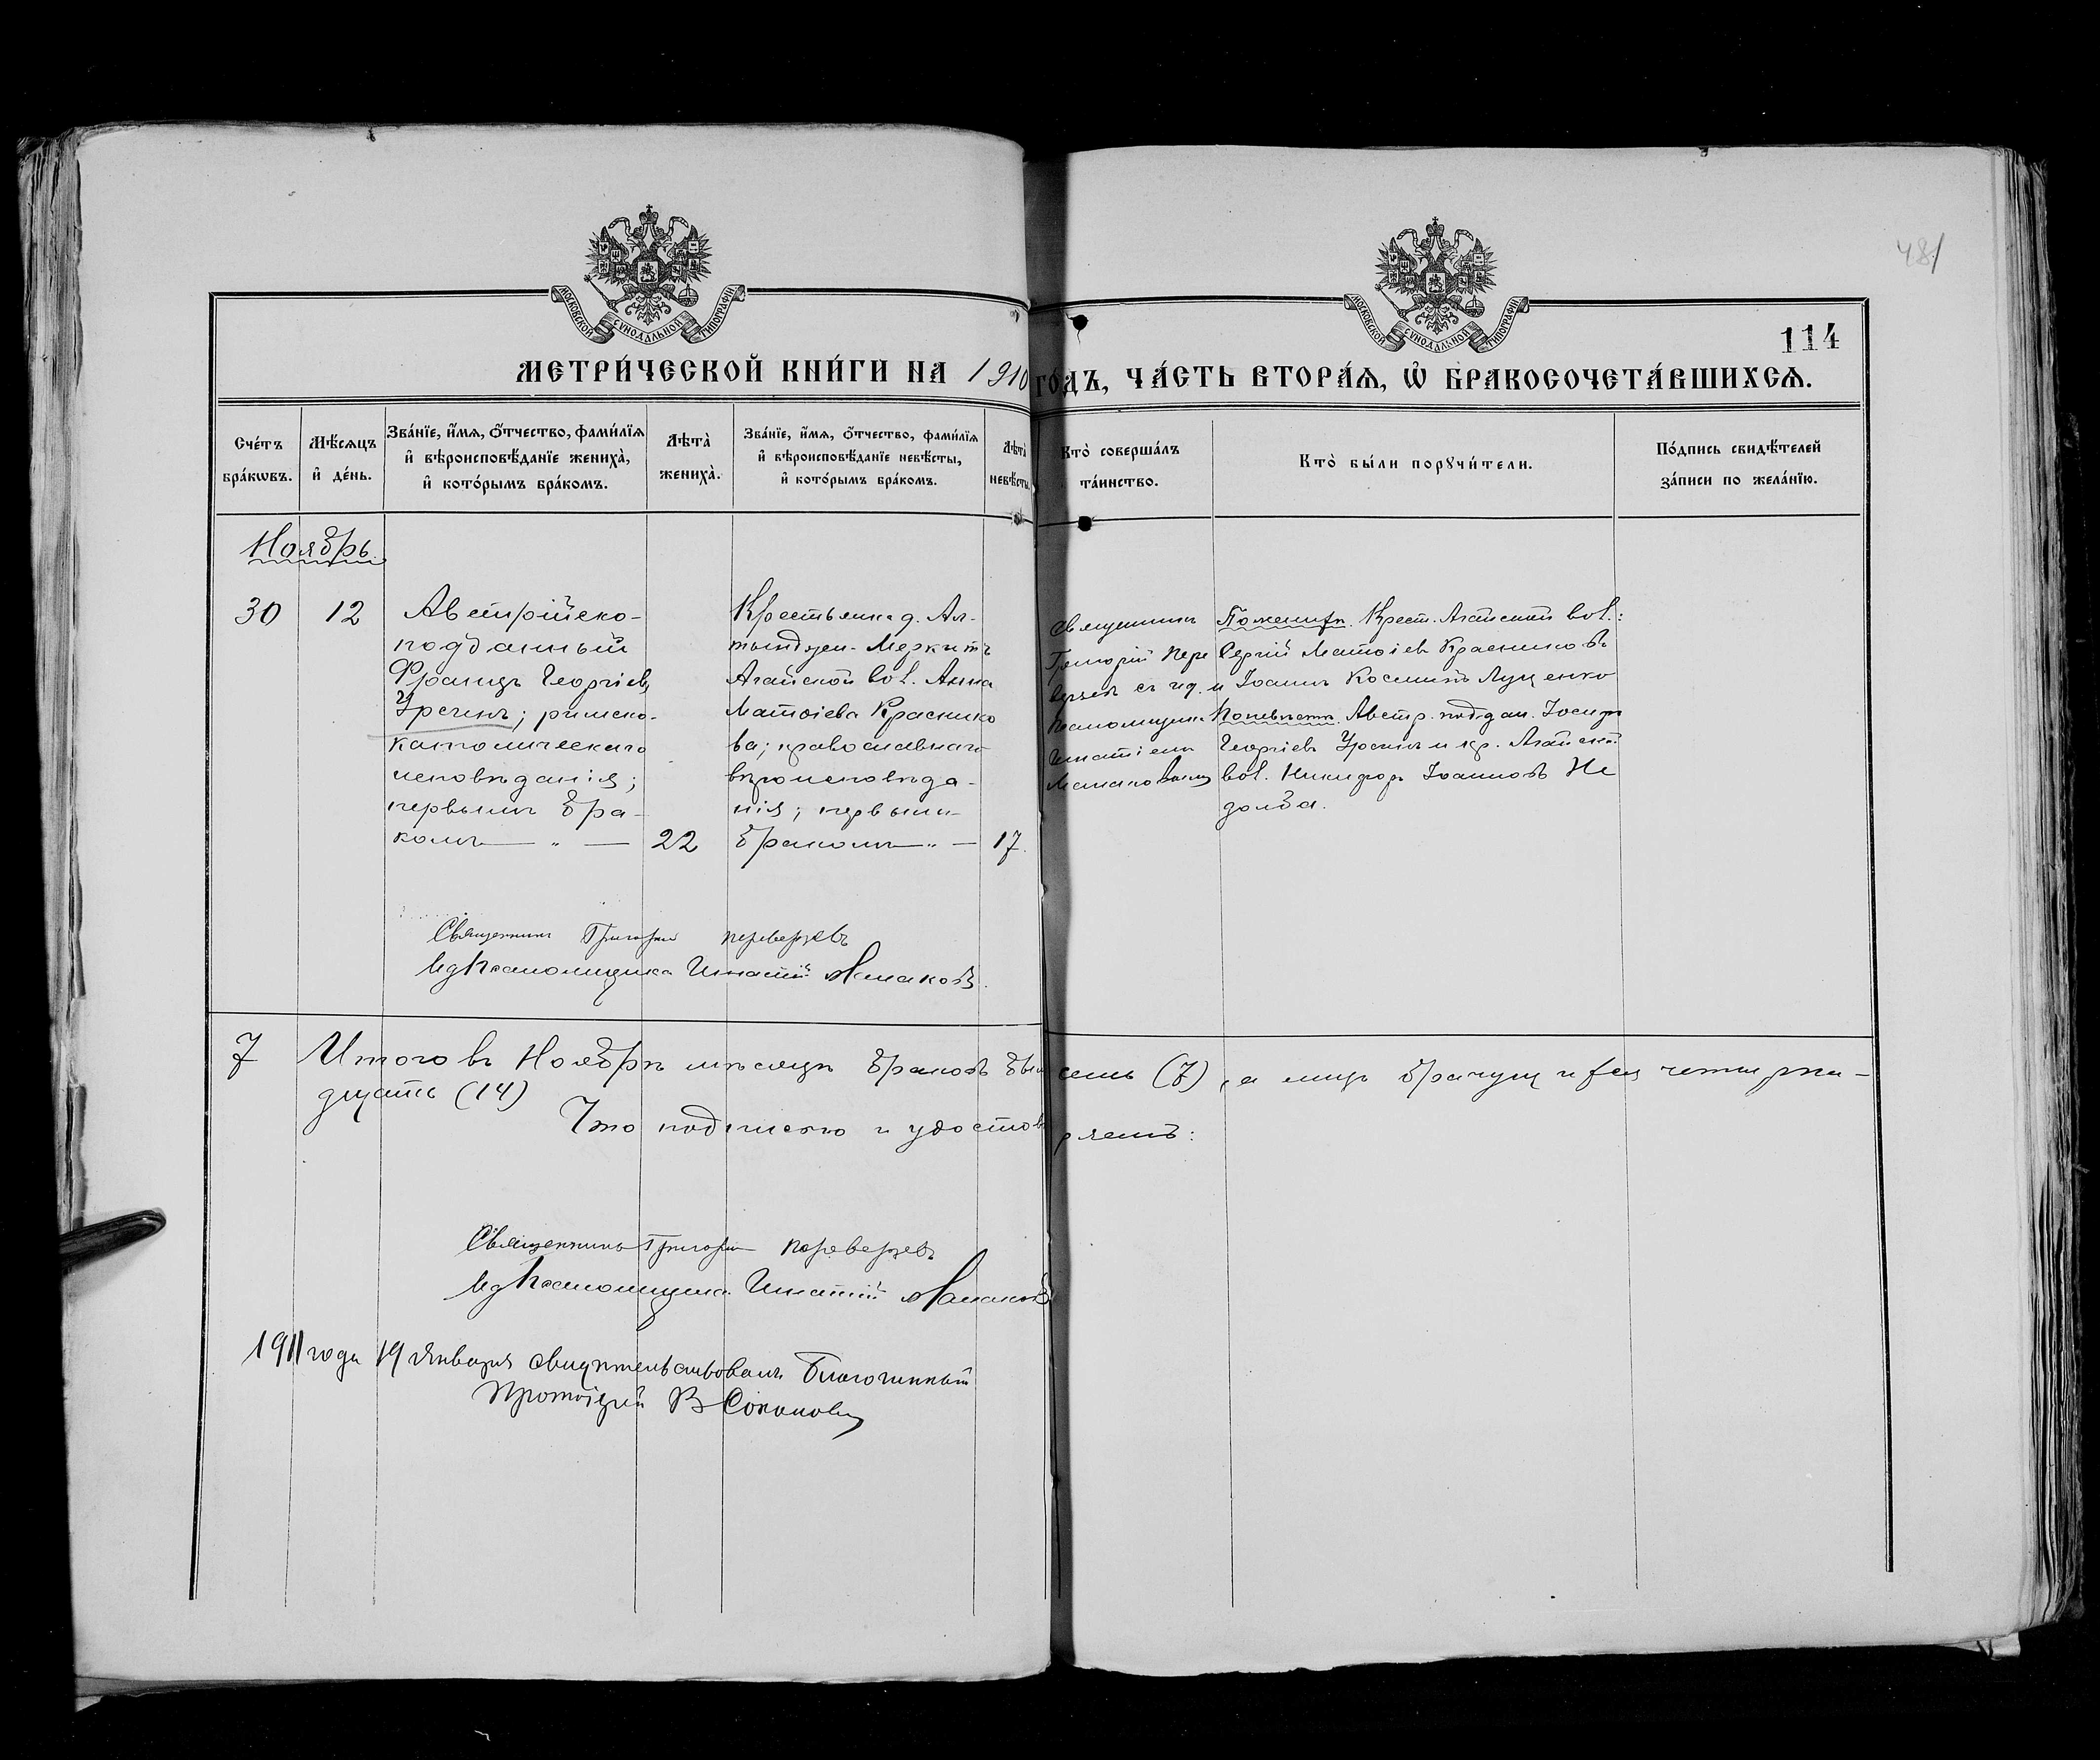 481
114
МОСКОВСКОЙ СѴНОДАЛЬНОЙ ТИПОГРАФІИ
МОСКОВСКОЙ СѴНОДАЛЬНОЙ ТИПОГРАФІИ
МЕТРИ́ЧЕСКОЙ КНИ́ГИ НА 1910 ГО́ДЪ, ЧА́СТЬ ВТОРА́Ѧ, Ѡ҆ БРАКОСОЧЕТА́ВШИХСѦ.
Сче́тъ
бра́кѡвъ.
Мѣ́сѧцъ
и҆ де́нь.
Зва́нїе, и҆́мѧ, о҆́тчество, фами́лїѧ
и҆ вѣроисповѣ́данїе жениха̀,
и҆ кото́рымъ бра́комъ.
Лѣта̀
жениха̀.
Зва́нїе, и҆́мѧ, о҆́тчество, фами́лїѧ
и҆ вѣроисповѣ́данїе невѣ́сты,
и҆ кото́рымъ бра́комъ.
Лѣта̀
невѣ́сты.
Кто̀ соверша́лъ
та́инство.
Кто̀ бы́ли порꙋчи́тели.
По́дпись свидѣ́телей
за́писи по жела́нїю.
Ноябрь.
30
12
Австрійско-
подданный
Францъ Георгіевъ
; римско-
католическаго
исповѣданія;
первымъ бра-
комъ — „ — 22
Крестьянка д. Ал-
Меркитъ
Агайской вол. Анна
Матѳіева Краснико
ва; православнаго
вѣроисповѣда-
нія; первымъ
бракомъ — „ — 17.
Священникъ
Григорій Пере
верзевъ съ ид.
псаломщика
Игнатіемъ
По женихѣ. Крест. Агайской вол.:
Сергій Матѳіевъ Красниковъ
и Іоаннъ Косминъ Луценко
По невѣстѣ. Австр. поддан. Іосифъ
Георгіевъ и кр. Агайской
вол. Никифоръ Іоанновъ Не
долба.
Священникъ Григорій Переверзевъ
Ид Псаломщика Игнатій
7 Итого въ Ноябрѣ мѣсяцѣ браковъ было семь (7), а лицъ брачущихся четырна-
дцать (14)
Что подписью и удостовѣряемъ:
Священникъ Григорій Переверзевъ
Ид Псаломщика Игнатій
1911 года 19 Января свидѣтельствовалъ Благочинный
Протоіерей В